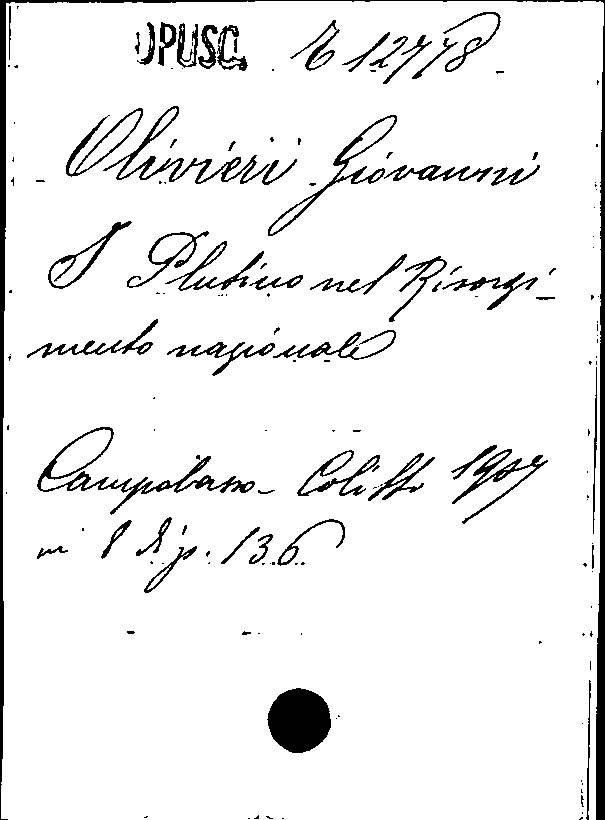 OPUSC. E 12778
Olivieri Giovanni
I Plutino nel Risorgi-
mento nazionale
Campobasso - Colitti 1907
in 8 di p. 136